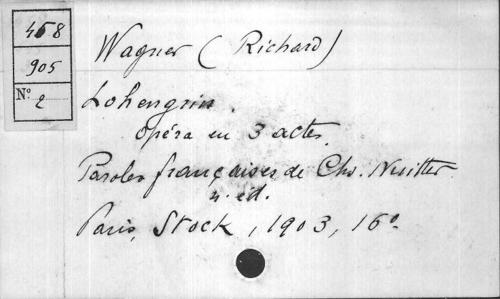 458
905
Nº 2
Wagner (Richard)
Lohengrin.
Opéra en 3 actes.
Paroles françaises de Chs. Nuitter
n. éd.
Paris, Stock, 1903, 16º.